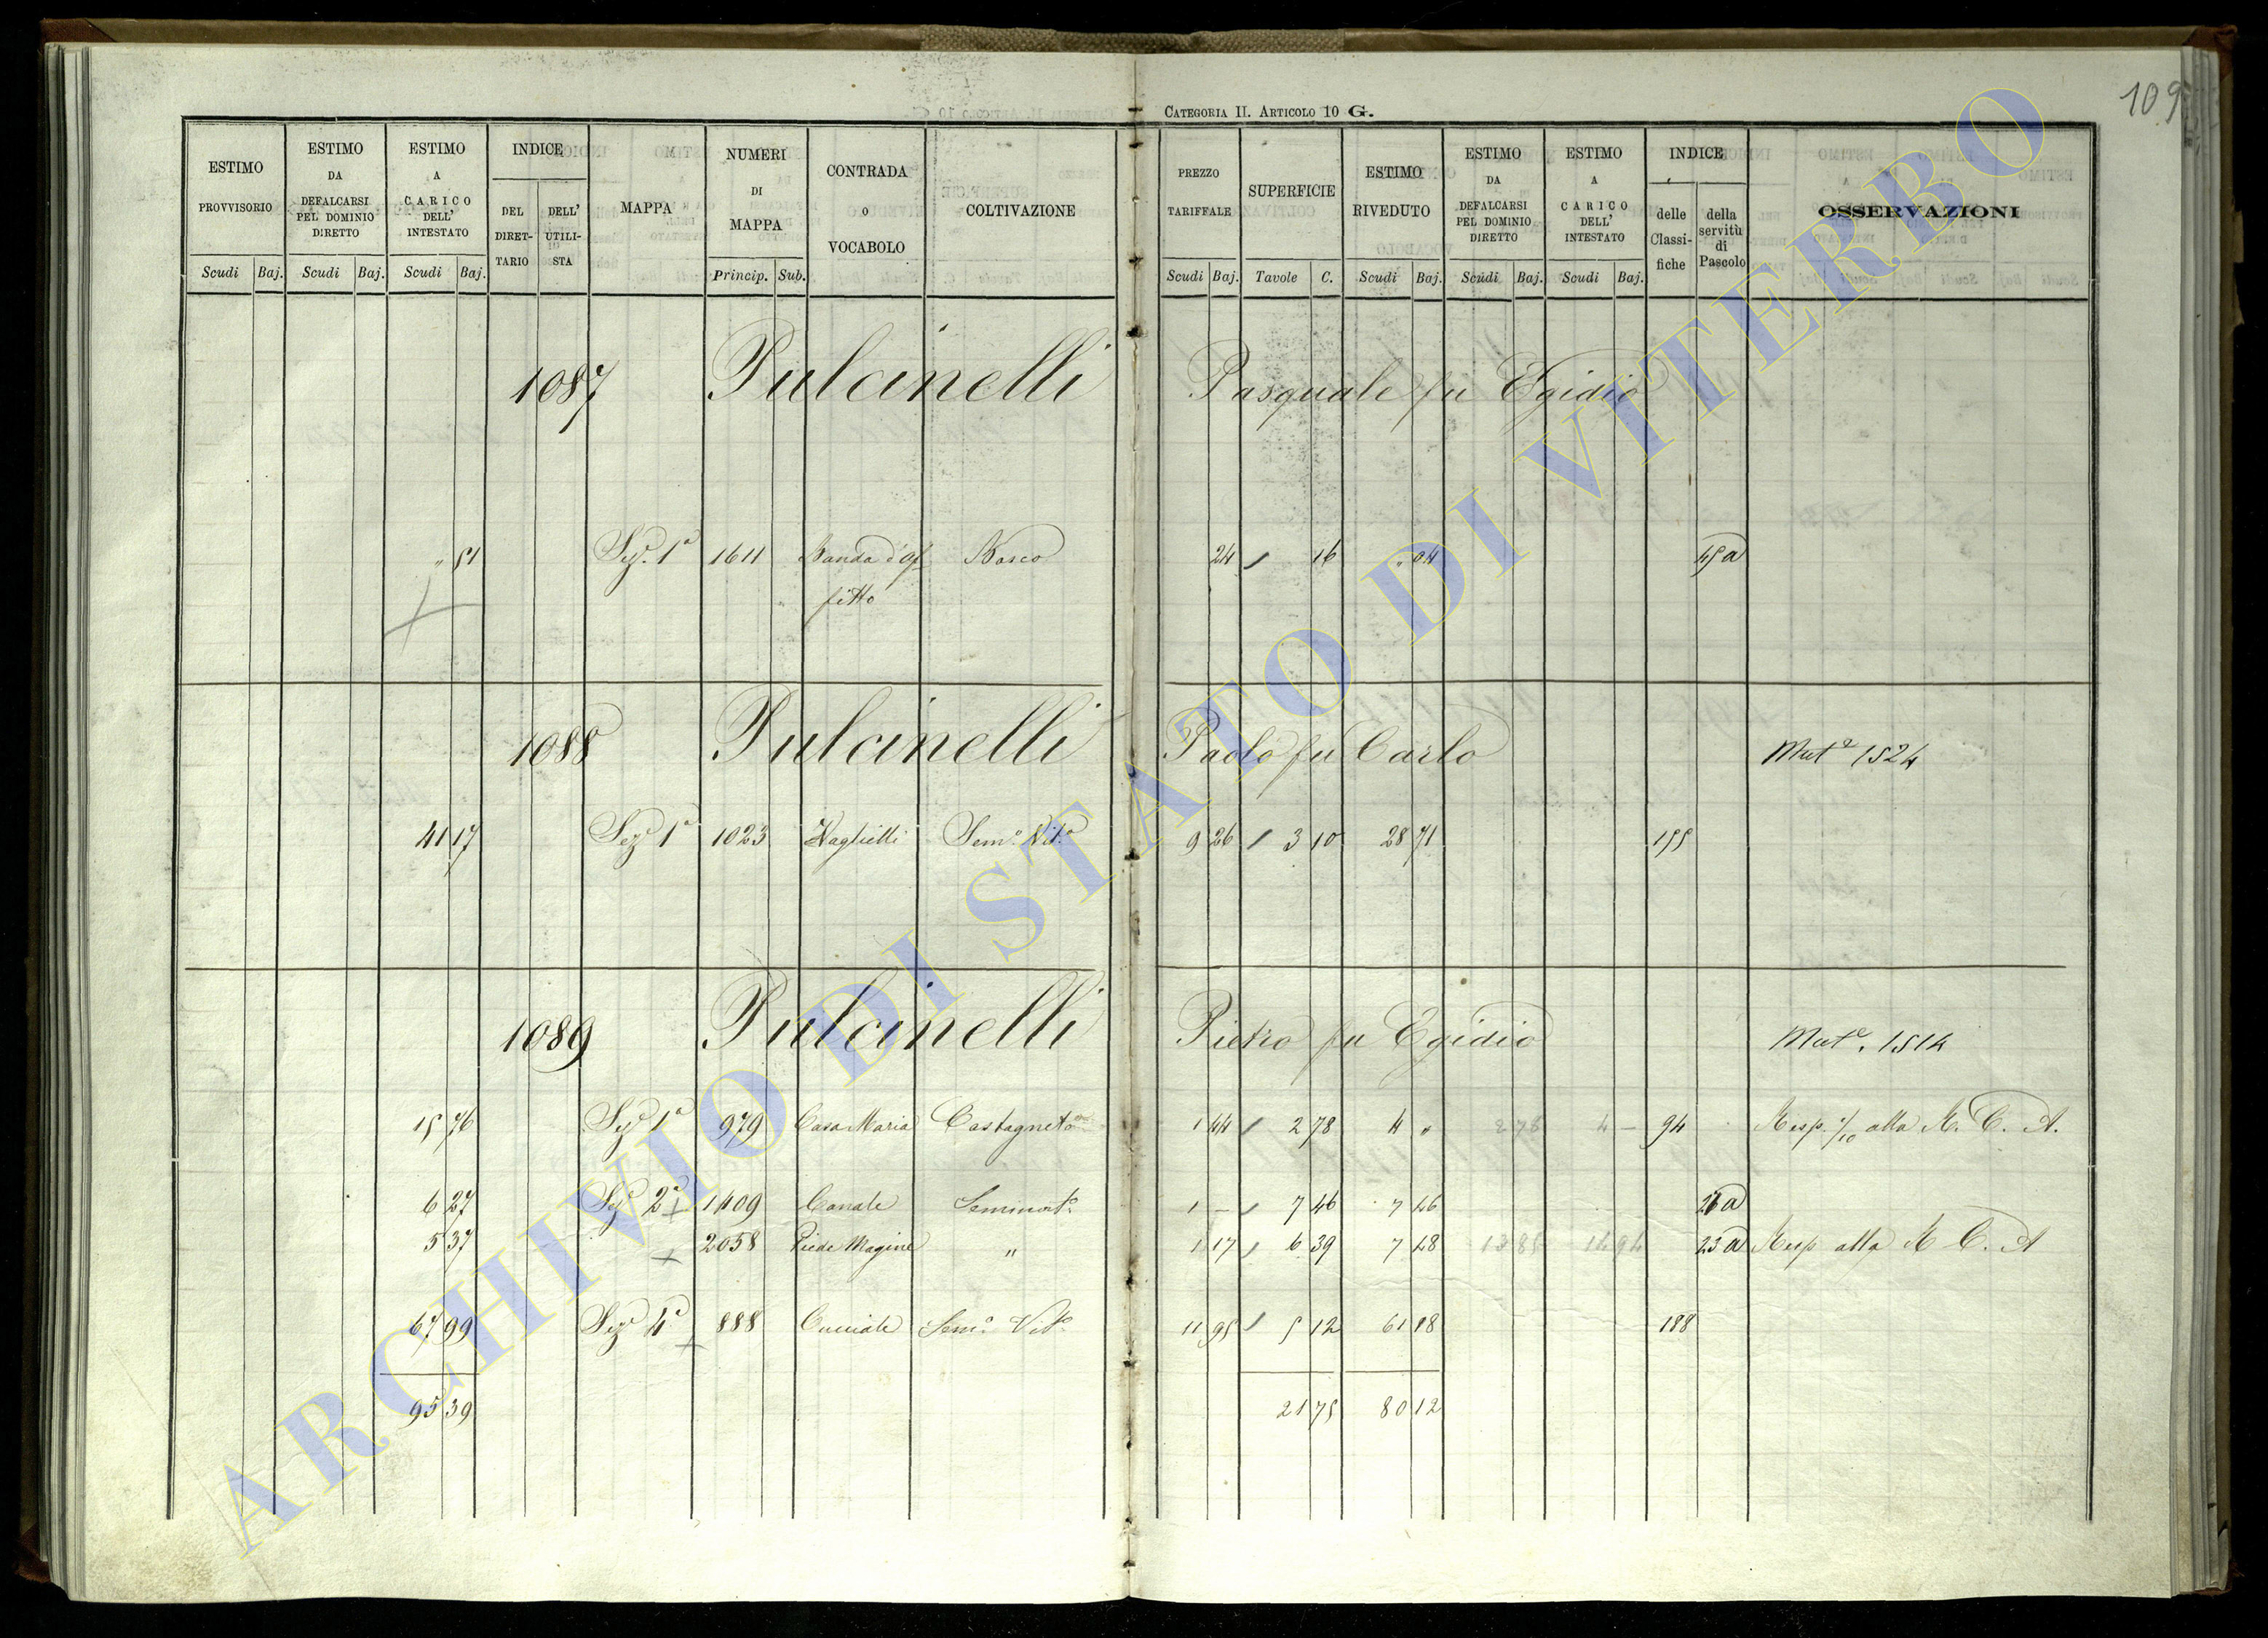 109
CATEGORIA II. ARTICOLO 10 G.
ESTIMO PROVVISORIO
ESTIMO DA DEFALCARSI PEL DOMINIO DIRETTO
ESTIMO A CARICO DELL' INTESTATO
INDICE
DEL DIRET-TARIO
DELL' UTILI-STA
MAPPA
NUMERI DI MAPPA
CONTRADA o VOCABOLO
COLTIVAZIONE
PREZZO TARIFFALE
SUPERFICIE
ESTIMO RIVEDUTO
ESTIMO DA DEFALCARSI PEL DOMINIO DIRETTO
ESTIMO A CARICO DELL' INTESTATO
INDICE
delle Classi-fiche
della servitù di Pascolo
OSSERVAZIONI
Scudi Baj. Scudi Baj. Scudi Baj. Princip. Sub. Scudi Baj. Tavole C. Scudi Baj. Scudi Baj. Scudi Baj.
1087 Pulcinelli Pasquale fu Egidio
" 51 Sez. 1a 1611 Banda d'Af Bosco 24 16 " 04 45 a
fitto
1088 Pulcinelli Paolo fu Carlo Mut.e 1524
41 17 Seze 1a 1023 Sem.o Vit.o 9 26 3 10 28 71 155
1089 Pulcinelli Pietro fu Egidio Mut.e 1514
15 76 Seze 1a 979 Casa Maria Castagneto 1 44 2 78 4 " 2 78 4 — 94 Resp. 1/10 alla R. C. A.
6 27 Seze 2a 1409 Canale Seminat.o 1 — 7 46 7 46 26 a
5 37 2058 Piede Magine " 1 17 6 39 7 48 13 85 14 94 23 a Resp alla R C. A
67 99 Seze 4a 888 Cucciale Sem.o Vit.o 11 95 5 12 61 18 188
95 39 21 75 80 12
ARCHIVIO DI STATO DI VITERBO